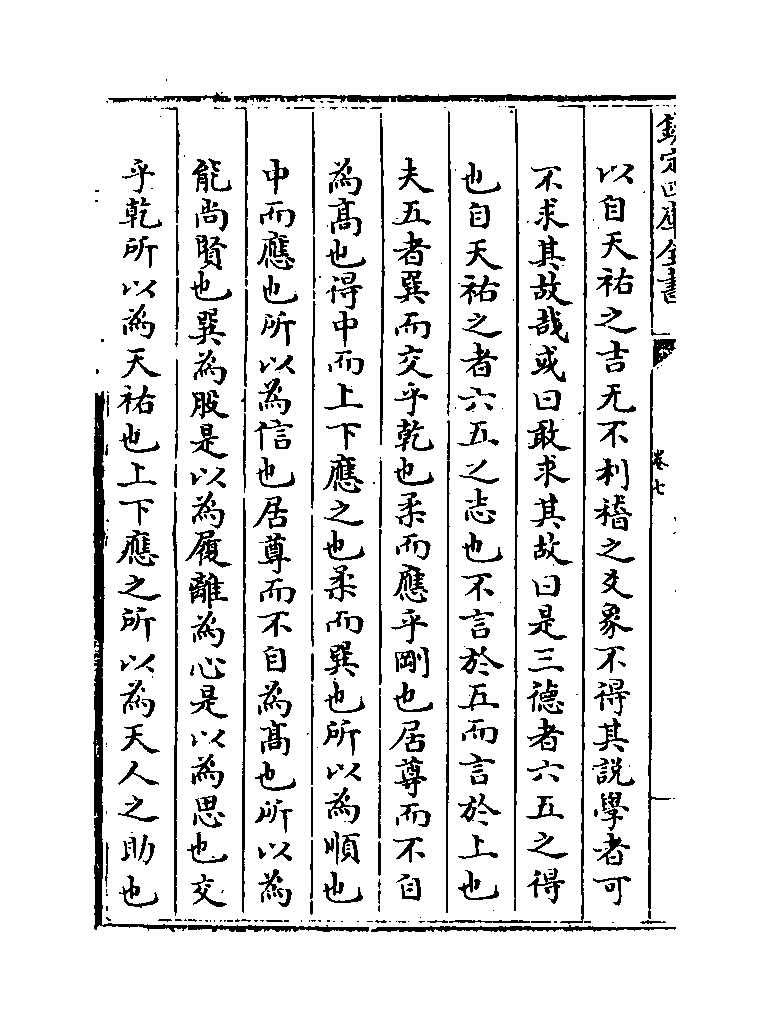 欽定四庫全書
卷七
以自天祐之吉无不利稽之爻象不得其說學者可
不求其故哉或曰敢求其故曰是三德者六五之得
也自天祐之者六五之志也不言於五而言於上也
夫五者巽而交乎乾也柔而應乎剛也居尊而不自
為髙也得中而上下應之也柔而巽也所以為順也
中而應也所以為信也居尊而不自為髙也所以為
能尚賢也巽為股是以為履離為心是以為思也交
乎乾所以為天祐也上下應之所以為天人之助也